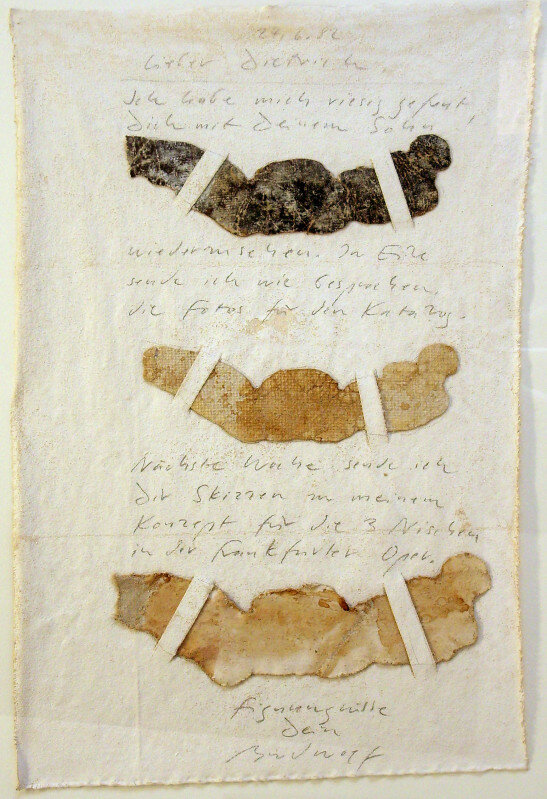 24.6.82
Lieber Dietrich,
Ich habe mich riesig gefreut,
Dich mit Deinem Sohn
wiederzusehen. In Eile
sende ich wie besprochen,
die Fotos für den Katalog.
Nächste Woche sende ich
dir Skizzen zu meinem
Konzept für die 3 Nischen
in der Frankfurter Oper.
Dein